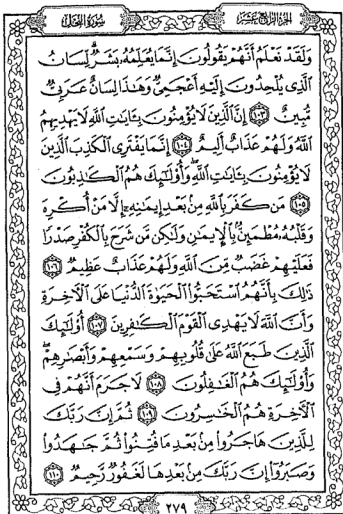 الجزء الرابع عشر
سورة النحل
وَلَقَدْ نَعْلَمُ أَنَّهُمْ يَقُولُونَ إِنَّمَا يُعَلِّمُهُۥ بَشَرٌ لِّسَانُ
ٱلَّذِى يُلْحِدُونَ إِلَيْهِ أَعْجَمِىٌّ وَهَـٰذَا لِسَانٌ عَرَبِىٌّ
مُّبِينٌ ١٠٣ إِنَّ ٱلَّذِينَ لَا يُؤْمِنُونَ بِـَٔايَـٰتِ ٱللَّهِ لَا يَهْدِيهِمُ
ٱللَّهُ وَلَهُمْ عَذَابٌ أَلِيمٌ ١٠٤ إِنَّمَا يَفْتَرِى ٱلْكَذِبَ ٱلَّذِينَ
لَا يُؤْمِنُونَ بِـَٔايَـٰتِ ٱللَّهِ ۖ وَأُو۟لَـٰٓئِكَ هُمُ ٱلْكَـٰذِبُونَ
١٠٥ مَن كَفَرَ بِٱللَّهِ مِنۢ بَعْدِ إِيمَـٰنِهِۦٓ إِلَّا مَنْ أُكْرِهَ
وَقَلْبُهُۥ مُطْمَئِنٌّۢ بِٱلْإِيمَـٰنِ وَلَـٰكِن مَّن شَرَحَ بِٱلْكُفْرِ صَدْرًا
فَعَلَيْهِمْ غَضَبٌ مِّنَ ٱللَّهِ وَلَهُمْ عَذَابٌ عَظِيمٌ ١٠٦
ذَٰلِكَ بِأَنَّهُمُ ٱسْتَحَبُّوا۟ ٱلْحَيَوٰةَ ٱلدُّنْيَا عَلَى ٱلْـَٔاخِرَةِ
وَأَنَّ ٱللَّهَ لَا يَهْدِى ٱلْقَوْمَ ٱلْكَـٰفِرِينَ ١٠٧ أُو۟لَـٰٓئِكَ
ٱلَّذِينَ طَبَعَ ٱللَّهُ عَلَىٰ قُلُوبِهِمْ وَسَمْعِهِمْ وَأَبْصَـٰرِهِمْ ۖ
وَأُو۟لَـٰٓئِكَ هُمُ ٱلْغَـٰفِلُونَ ١٠٨ لَا جَرَمَ أَنَّهُمْ فِى
ٱلْـَٔاخِرَةِ هُمُ ٱلْخَـٰسِرُونَ ١٠٩ ثُمَّ إِنَّ رَبَّكَ
لِلَّذِينَ هَاجَرُوا۟ مِنۢ بَعْدِ مَا فُتِنُوا۟ ثُمَّ جَـٰهَدُوا۟
وَصَبَرُوٓا۟ إِنَّ رَبَّكَ مِنۢ بَعْدِهَا لَغَفُورٌ رَّحِيمٌ ١١٠
٢٧٩